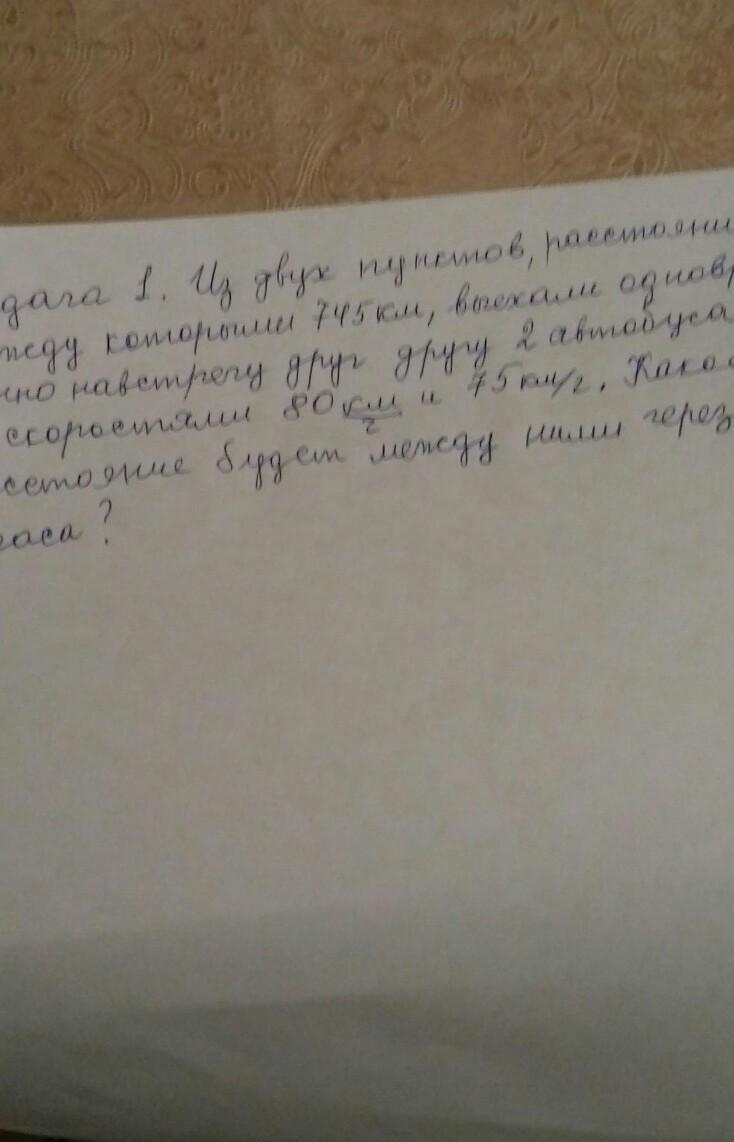 дача 1. Из двух пунктов, расстояни
жду которыми 745км, выехали однов
но навстречу друг другу 2 автобуса
скоростями 80 км/ч и 75 км/ч. Како
сстояние будет между ними через
часа?